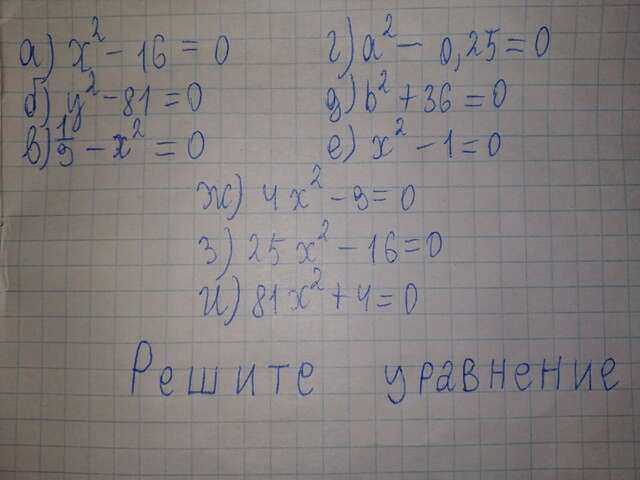 а) x² - 16 = 0
б) y² - 81 = 0
в) 1/9 - x² = 0
г) a² - 0,25 = 0
д) b² + 36 = 0
е) x² - 1 = 0
ж) 4x² - 9 = 0
з) 25x² - 16 = 0
и) 81x² + 4 = 0
Решите уравнение